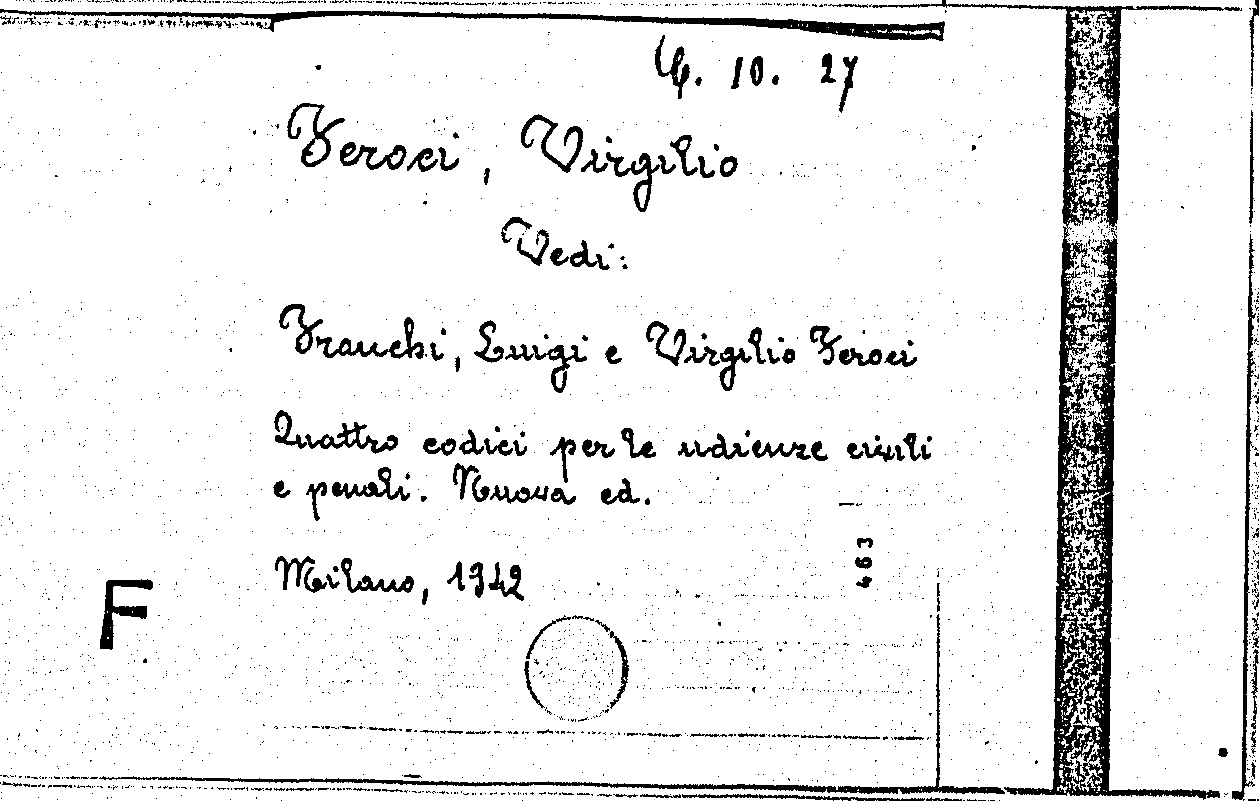 10. 27
Feroci, Virgilio
Vedi:
Franchi, Luigi e Virgilio Feroci
Quattro codici per le udienze civili
e penali. Nuova ed.
463
Milano, 1942
F